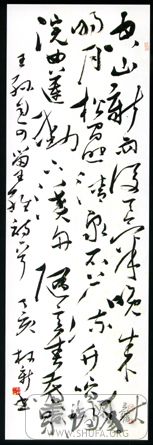 空山新雨後天氣晚來秋
明月松間照清泉石上流竹喧歸
浣女蓮動下漁舟隨意春芳歇
王孫自可留
丁亥
WWW.SHUFA.ORG